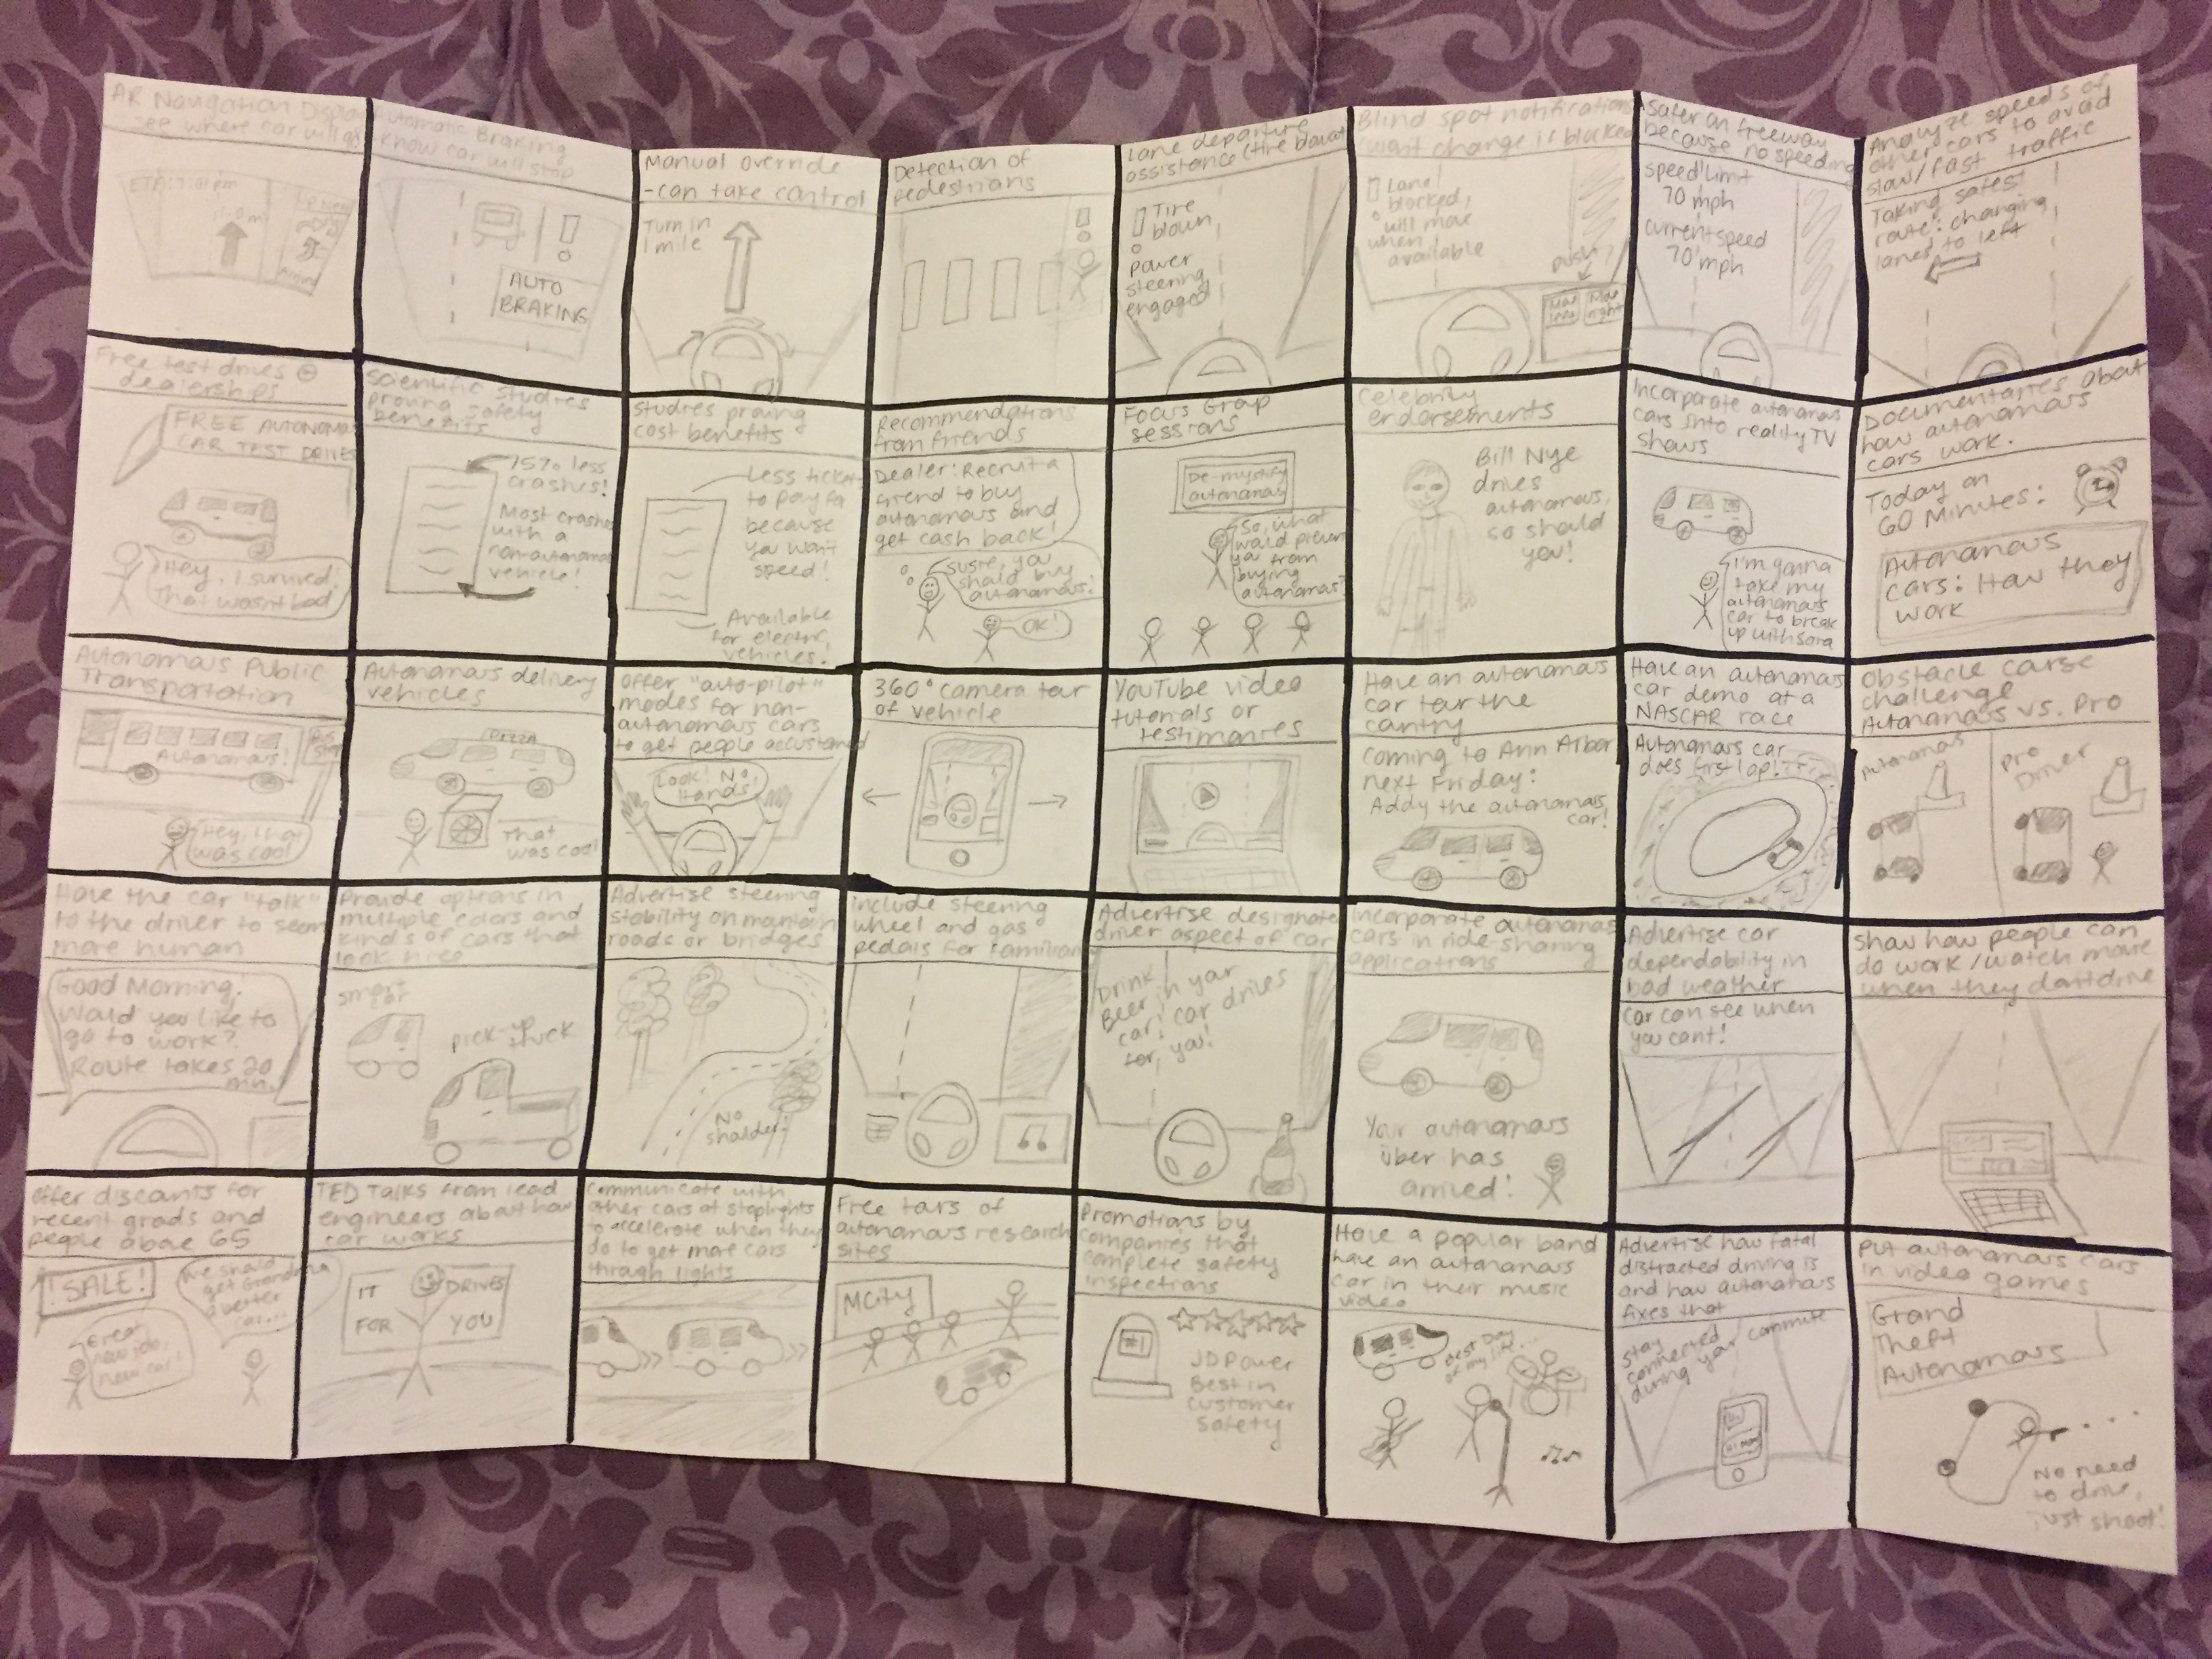 AR Navigation Display
- see where car will go
ETA: 7:01 pm
1.0 mi
UP NEXT
Around
Automatic Braking
- know car will stop
!
AUTO
BRAKING
Manual override
- can take control
Turn in
1 mile
Detection of
pedestrians
!
Lane departure
assistance (tire blowout)
! Tire
blown,
power
steering
engaged
Blind spot notifications
(won't change if blocked)
! Lane
blocked,
will move
when
available
push
Move
left
Move
right
Safer on freeway
because no speeding
speed limit
70 mph
current speed
70 mph
Analyze speeds of
other cars to avoid
slow/fast traffic
Taking safest
route: changing
lanes to left
Free test drives @
dealerships
FREE AUTONOMOUS
CAR TEST DRIVES
Hey, I survived!
That wasn't bad
Scientific studies
proving safety
benefits
75% less
crashes!
Most crashes
with a
non-autonomous
vehicle!
Studies proving
cost benefits
Less tickets
to pay for
because
you won't
speed!
Available
for electric
vehicles!
Recommendations
from friends
Dealer: Recruit a
friend to buy
autonomous and
get cash back!
Susie, you
should buy
autonomous!
OK!
Focus Group
sessions
De-mystify
autonomous
So, what
would prevent
you from
buying
autonomous?
Celebrity
endorsements
Bill Nye
drives
autonomous,
so should
you!
Incorporate autonomous
cars into reality TV
shows
I'm gonna
take my
autonomous
car to break
up with Sara
Documentaries about
how autonomous
cars work.
Today on
60 Minutes:
Autonomous
cars: How they
work
Autonomous Public
Transportation
Autonomous!
Bus
Stop
Hey, that
was cool
Autonomous delivery
vehicles
PIZZA
That
was cool
Offer "auto-pilot"
modes for non-
autonomous cars
to get people accustomed
Look! No
Hands!
360° camera tour
of vehicle
YouTube video
tutorials or
testimonies
Have an autonomous
car tour the
country
Coming to Ann Arbor
next Friday:
Addy the autonomous
car!
Have an autonomous
car demo at a
NASCAR race
Autonomous car
does first lap!
Obstacle course
challenge
Autonomous vs. Pro
Autonomous
Pro
Driver
Have the car "talk"
to the driver to seem
more human
Good Morning!
Would you like to
go to work?
Route takes 20
min.
Provide options in
multiple colors and
kinds of cars that
look nice
smart
car
pick-up
truck
Advertise steering
stability on mountain
roads or bridges
No
shoulder!
Include steering
wheel and gas
pedals for familiarity
Advertise designated
driver aspect of car
Drink
Beer in your
car! car drives
for you!
Incorporate autonomous
cars in ride-sharing
applications
Your autonomous
Uber has
arrived!
Advertise car
dependability in
bad weather
Car can see when
you can't!
Show how people can
do work/watch movie
when they don't drive
Offer discounts for
recent grads and
people above 65
! SALE!
We should
get Grandma
a better
car...
Great
new job,
new car!
TED Talks from lead
engineers about how
car works
IT DRIVES
FOR YOU
Communicate with
other cars at stoplights
to accelerate when they
do to get more cars
through lights
Free tours of
autonomous research
sites
MCity
Promotions by
companies that
complete safety
inspections
#1
JD Power
Best in
Customer
Safety
Have a popular band
have an autonomous
car in their music
video
Best Day
of my life...
Advertise how fatal
distracted driving is
and how autonomous
fixes that
Stay
connected
during your commute
Put autonomous cars
in video games
Grand
Theft
Autonomous
No need
to drive,
just shoot!